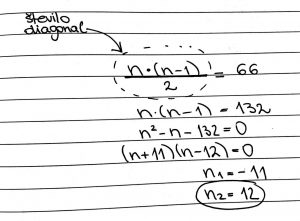 število
diagonal
n·(n-1)/2 = 66
n·(n-1) = 132
n²-n-132=0
(n+11)(n-12)=0
n₁=-11
n₂=12